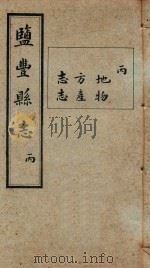 丙
地方志
物產志
鹽豐縣志 丙